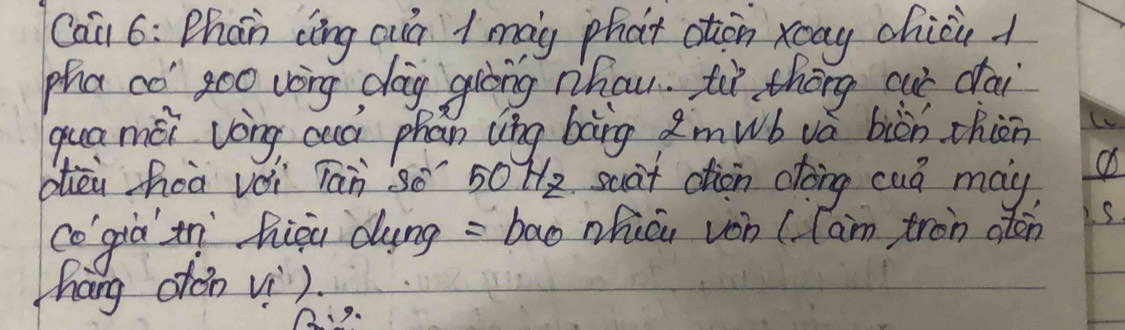 Câu 6: Phần ứng của 1 máy phát điện xoay chiều 1
pha có 200 vòng dây giống nhau. từ thông cực đại
qua mỗi vòng của phần ứng bằng 2mWb và biến thiên
điều hoà với Tần số 50Hz suất điện động của máy
có giá trị hiệu dụng = bao nhiêu vôn (làm tròn đến
hàng đơn vị).